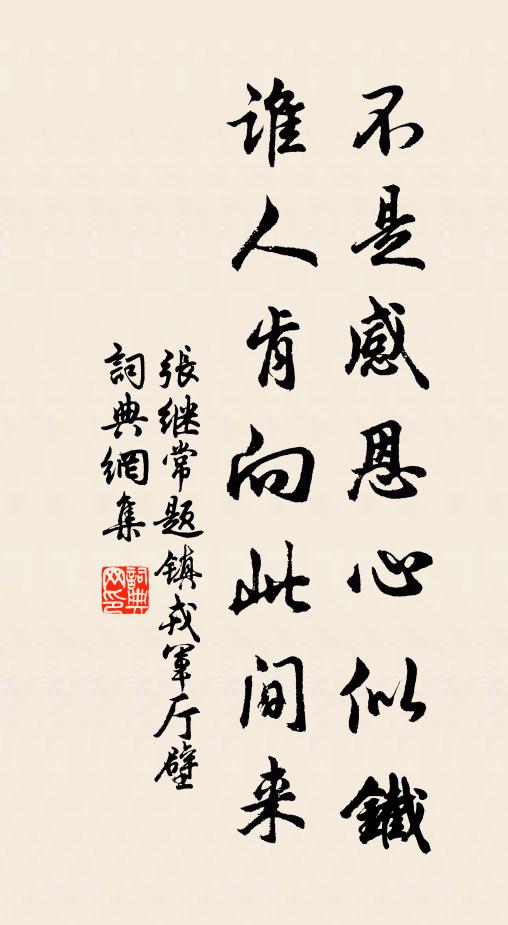 不是感恩心似鐵
谁人肯向此间来
張继常题鎮戎軍厅壁
詞典網集
詞典
网印